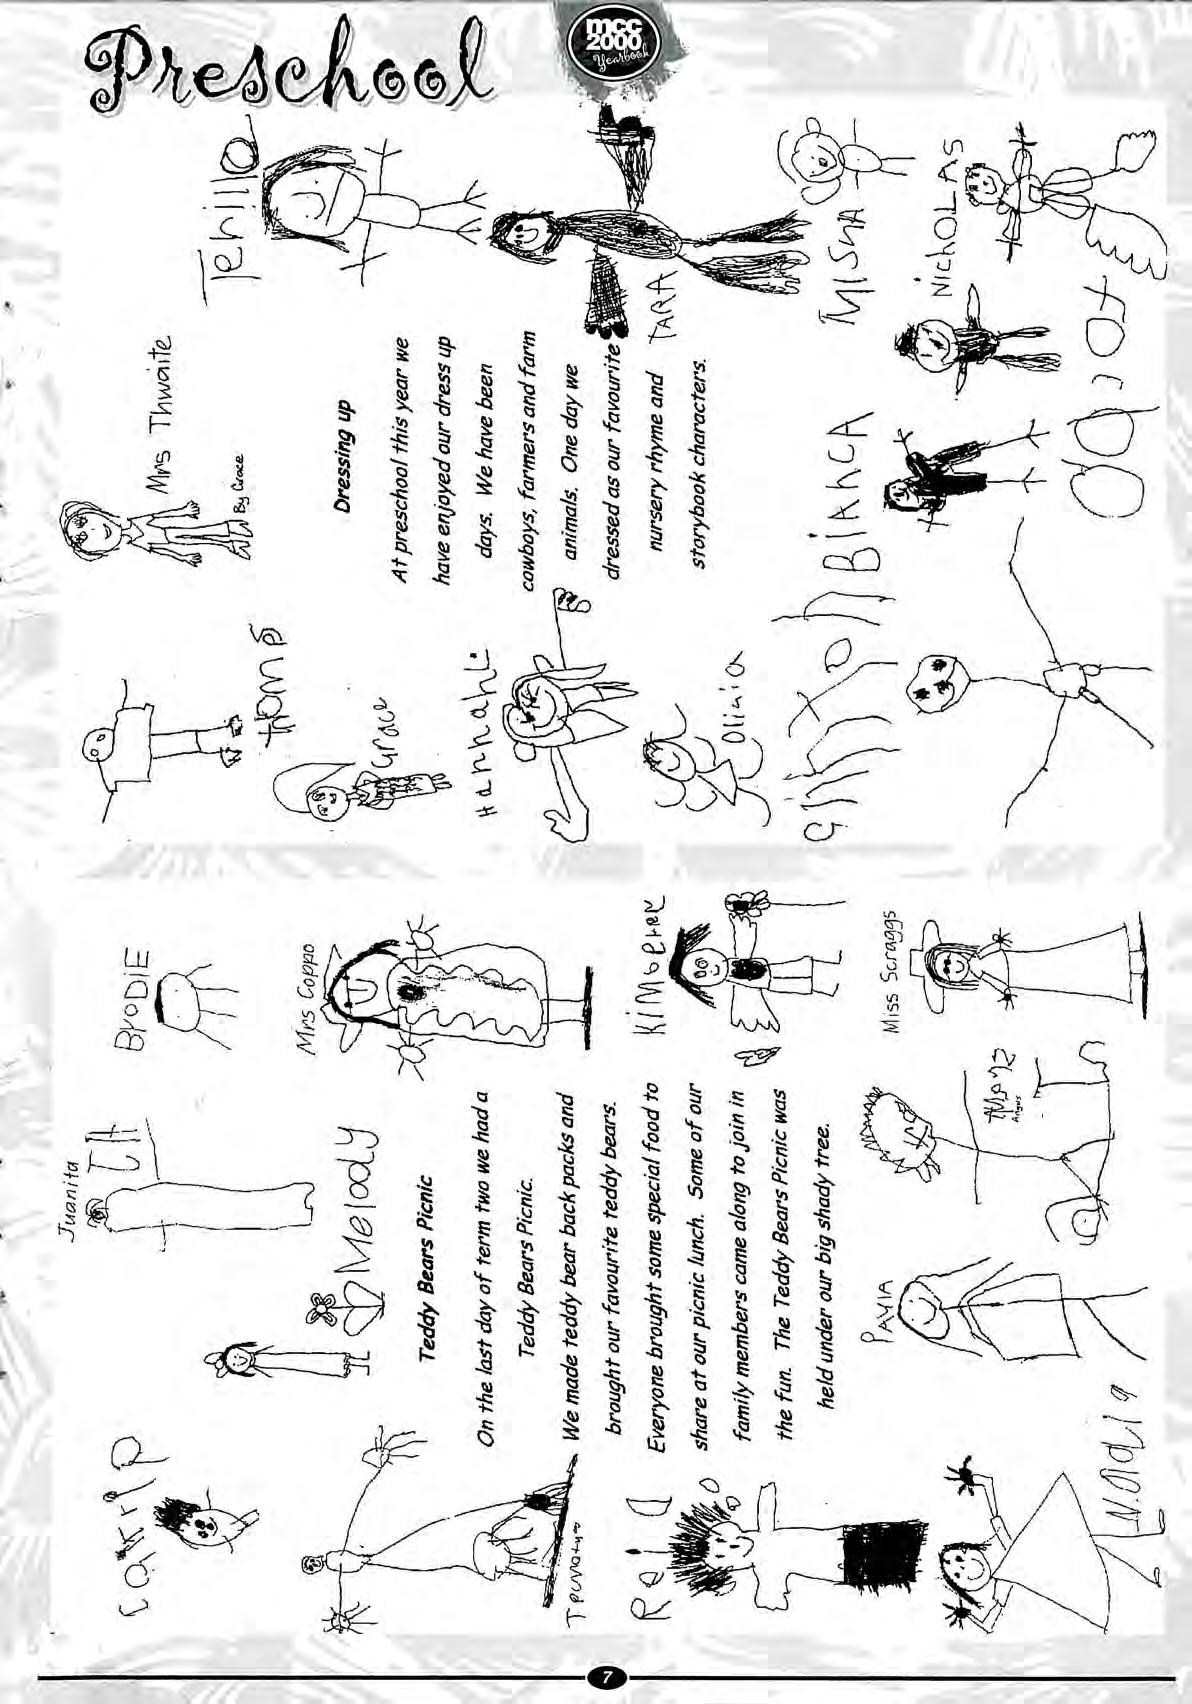 Preschool
mcc
2000
Yearbook
Tehilla
TARA
MISHA
NICHOLAS
Mrs Thwaite
By Grace
Dressing up
At preschool this year we
have enjoyed our dress up
days. We have been
cowboys, farmers and farm
animals. One day we
dressed as our favourite
nursery rhyme and
storybook characters.
BIANCA
Grace
Hannah L.
Olivia
BroDiE
Mrs Coppo
Miss Scraggs
Juanita
Melody
Teddy Bears Picnic
On the last day of term two we had a
Teddy Bears Picnic.
We made teddy bear back packs and
brought our favourite teddy bears.
Everyone brought some special food to
share at our picnic lunch. Some of our
family members came along to join in
the fun. The Teddy Bears Picnic was
held under our big shady tree.
Angus
7